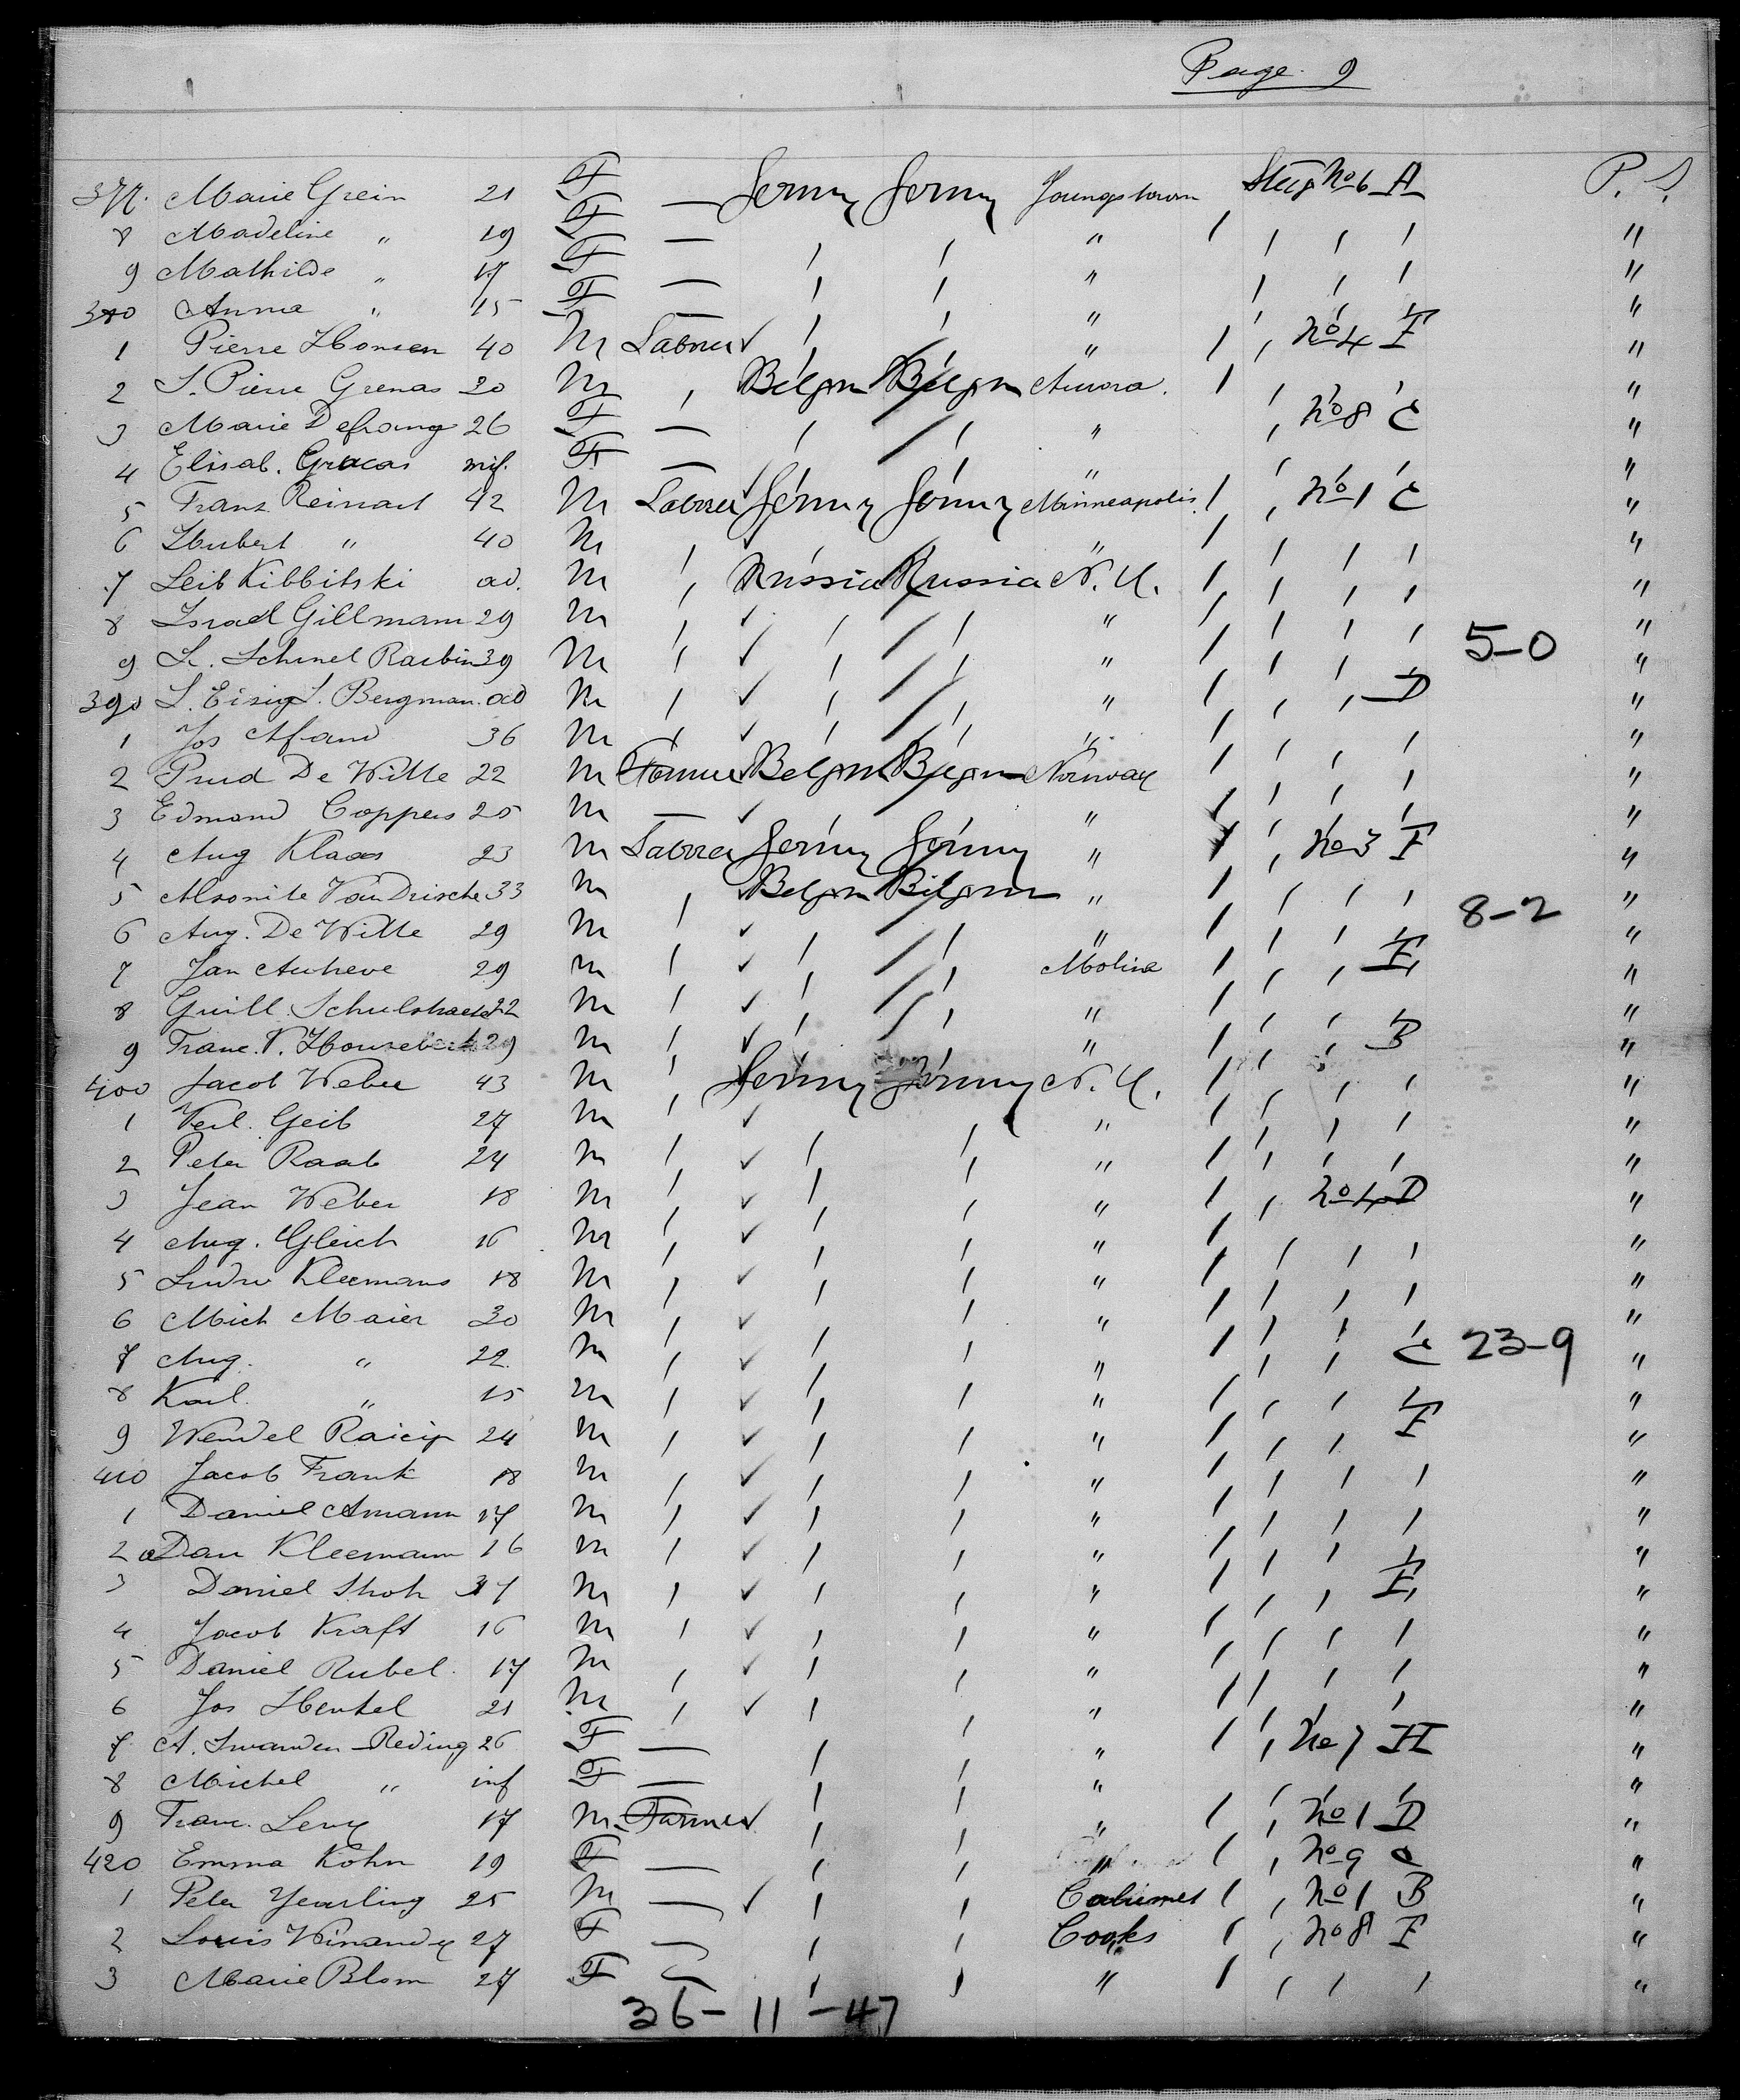 Page 9
377. Marie Grein 21 F — Germy Germy Youngstown Steig No 6 A P. S.
8 Madeline " 19 F — / / " / / / / "
9 Mathilde " 17 F — / / " / / / "
380 Anna " 15 F — / / " / / / "
1 Pierre Honsen 40 M Laborer ✓ / / " / / No 4 F "
2 J. Pierre Grenas 20 M / Belgm Belgm Aurora. / / / / "
3 Marie Defrang 26 F — / / " / No 8 C "
4 Elisab. Gracas inf. F — / / " / / / "
5 Franz Reinart 42 M Laborer ✓ Germy Germy Minneapolis / / No 1 C "
6 Hubert " 40 M / ✓ / / " / / / / "
7 Leib Kibbitski ad. M / Russia Russia N. Y. / / / / "
8 Israel Gillmann 29 M / ✓ / / " / / / / "
9 Schmel Raibin 39 M / ✓ / / " / / / / 5-0 "
390 Bergman. ad M / ✓ / / " / / / D "
1 Jos 36 M / ✓ / / " / / / / "
2 Prud De Witte 22 M Farmer ✓ Belgm Belgm Norway / / / / "
3 Edmond Coppens 25 M — ✓ " / / / / "
4 Aug Klaas 23 M Laborer Germy Germy " / / No 3 F "
5 Van Drische 33 M / Belgm Belgm " / / / / "
6 Aug. De Witte 29 M / ✓ / / " / / / / 8-2 "
7 Jan 29 M / ✓ / / Moline / / / E "
8 Guill. 22 M / ✓ / / " / / / / "
9 Franc. V. 29 M / ✓ / / " / / / B "
400 Jacob Weber 43 M / Germy Germy N. Y. / / / / "
1 Geib 27 M / ✓ " / / / / "
2 Peter Raab 24 M / ✓ / / " / / / / "
3 Jean Weber 18 M / ✓ / / " / / No 4 D "
4 Aug. Gleich 16 M / ✓ / / " / / / / "
5 Ludw Kleemans 18 M / ✓ / / " / / / / "
6 Mich Maier 30 M / ✓ / / " / / / / "
7 Aug. " 22 M / ✓ / / " / / / C 23-9 "
8 Karl. " 15 M / ✓ / / " / / / / "
9 Wendel 24 M / ✓ / / " / / / F "
410 Jacob Frank 18 M / ✓ / / " / / / / "
1 Daniel Amann 17 M / ✓ / / " / / / / "
2 Dan Kleemann 16 M / ✓ / / " / / / / "
3 Daniel M / ✓ / / " / / / E "
4 Jacob Kraft 16 M / ✓ / / " / / / / "
5 Daniel Rubel. 17 M / ✓ / / " / / / / "
6 Jos Henkel 21 M / ✓ / / " / / / / "
7 A. Reding 26 F — / / " / / No 7 H "
8 Michel " inf F — / / " / / "
9 Franc. Levy 17 M Farmer ✓ / / " / / No 1 D "
420 Emma Kohn 19 F — / / " / / No 9 "
1 Peter Yearling 25 M — ✓ / / Calumet / / No 1 B "
2 Louis Winandy 27 F — / / Cooks / / No 8 F "
3 Marie Blom 27 F — / / " / / / / "
36-11-47